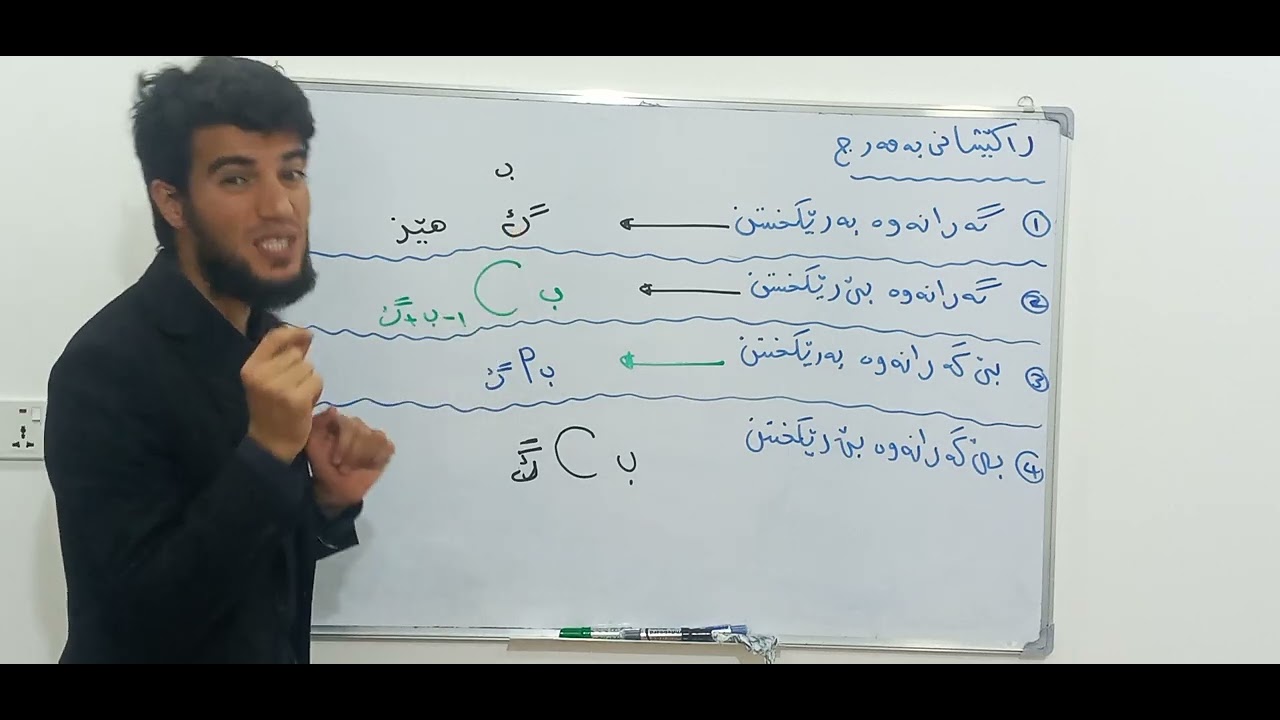 راكێشانی بە مەرج
① گەرانەوە بەرێكخستن ← گ ب هێز
② گەرانەوە بێ رێكخستن ← ب C گ+ب-١
③ بێ گەرانەوە بەرێكخستن ← ب P گ
④ بێ گەرانەوە بێ رێكخستن ب C گ